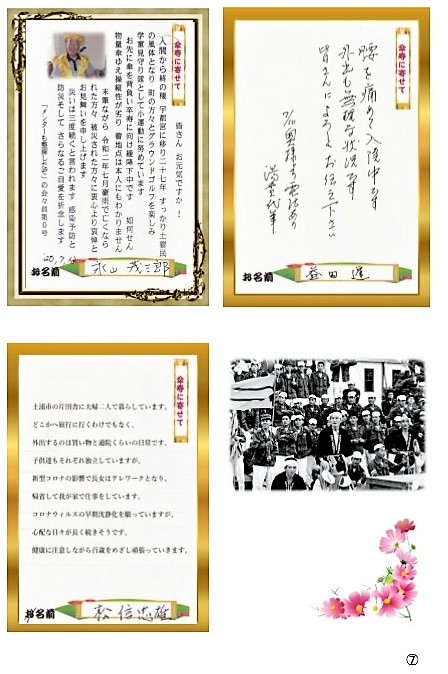 傘寿に寄せて
皆さん お元気ですか !
入間から終の棲 宇都宮に移り二十七年 すっかり土着民
の風体となり 町の方々とグラウンドゴルフを楽しみ
学童見守り隊として小運動に努めています
お先に傘を背負い卒寿に向け緩降下中です 如何せん
物量傘ゆえ操縦性が劣り 着地点は本人にもわかりません
末筆ながら 令和二年七月豪雨で亡くなら
れた方々 被災された方々に衷心より哀悼と
お見舞いを申し上げます
災いは三度続くと言われます 感染予防と
防災そして さらなるご自愛を祈念します
お名前
傘寿に寄せて
腰を痛めて入院中です
外出も無理な状況です
皆さんによろしくお伝え下さい
お名前 益田 進
傘寿に寄せて
土浦市の片田舎に夫婦二人で暮らしています。
どこかへ旅行に行くわけでもなく、
外出するのは買い物と通院くらいの日常です。
子供達もそれぞれ独立していますが、
新型コロナの影響で長女はテレワークとなり、
帰省して我が家で仕事をしています。
コロナウィルスの早期沈静化を願っていますが、
心配な日々が長く続きそうです。
健康に注意しながら百歳をめざし頑張っていきます。
お名前 松信忠雄
⑦